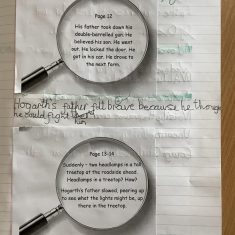 Page 12
His father took down his
double-barrelled gun. He
believed his son. He went
out. He locked the door. He
got in his car. He drove to
the next farm.
Hogarth's father felt brave because he
he could fight
him
Page 13-14
Suddenly – two headlamps in a tall
treetop at the roadside ahead.
Headlamps in a treetop? How?
Hogarth's father slowed, peering up
to see what the lights might be, up
there in the treetop.